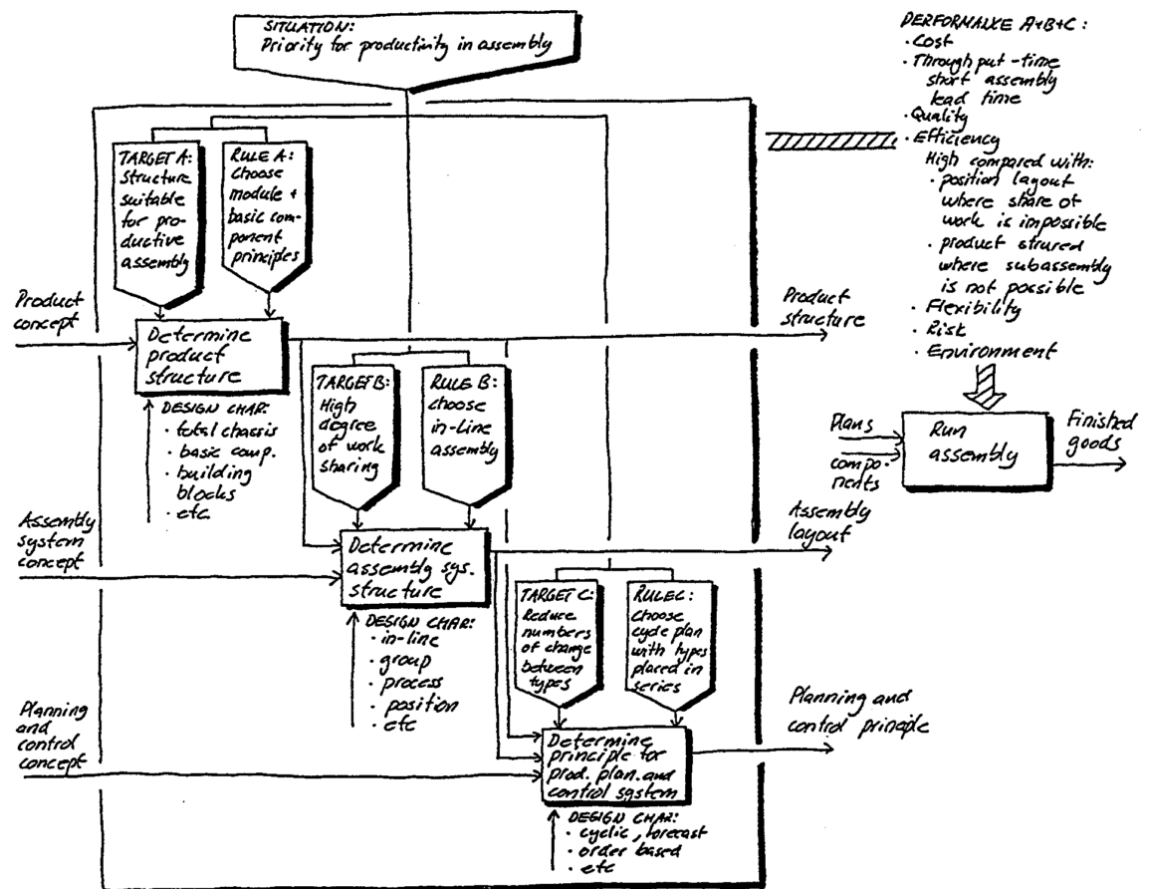 SITUATION:
Priority for productivity in assembly
PERFORMANCE A+B+C:
· Cost
· Through put-time
short assembly
lead time
· Quality
· Efficiency
High compared with:
· position layout
where share of
work is impossible
· product strured
where subassembly
is not possible
· Flexibility
· Risk
· Environment
TARGET A:
Structure
suitable
for pro-
ductive
assembly
RULE A:
Choose
module +
basic com-
ponent
principles
Product
concept
Determine
product
structure
Product
structure
DESIGN CHAR:
· total chassis
· basic comp.
· building
blocks
· etc.
TARGET B:
High
degree
of work
sharing
RULE B:
choose
in-Line
assembly
Plans
compo-
nents
Run
assembly
Finished
goods
Assembly
system
concept
Determine
assembly sys.
structure
Assembly
layout
DESIGN CHAR:
· in-line
· group
· process
· position
· etc
TARGET C:
Reduce
numbers
of change
between
types
RULE C:
Choose
cycle plan
with types
placed in
series
Planning
and
control
concept
Determine
principle for
prod. plan. and
control system
Planning and
control principle
DESIGN CHAR:
· cyclic, forecast
· order based
· etc